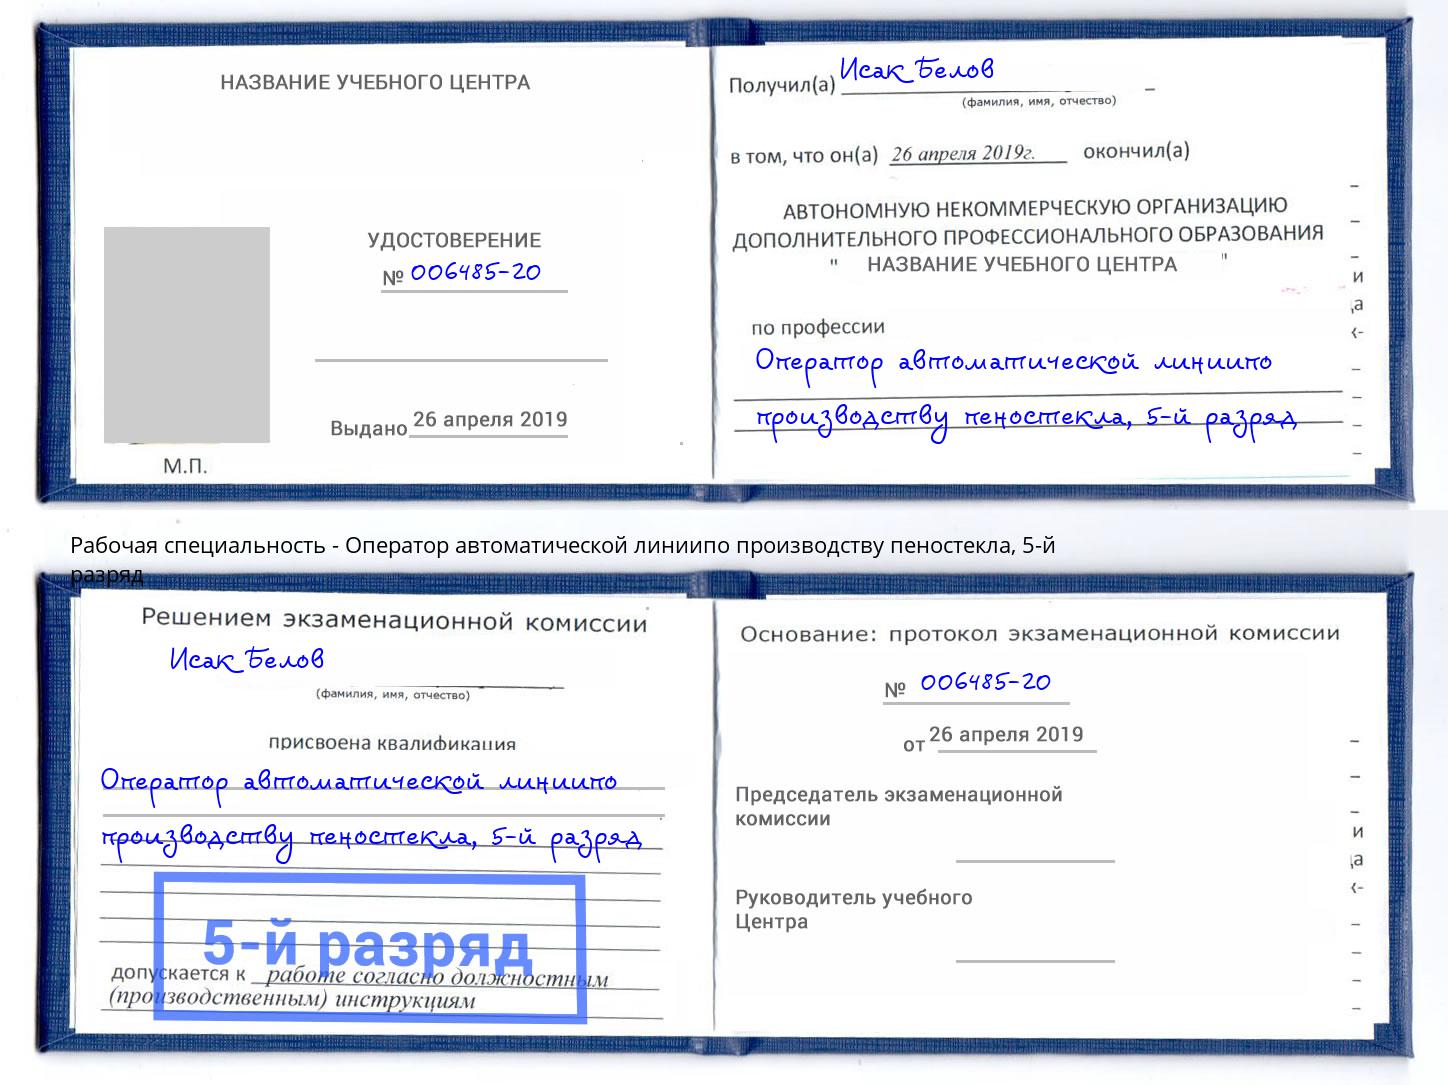 НАЗВАНИЕ УЧЕБНОГО ЦЕНТРА
УДОСТОВЕРЕНИЕ
№ 006485-20
Выдано 26 апреля 2019
М.П.
Получил(а) Исак Белов
(фамилия, имя, отчество)
в том, что он(а) 26 апреля 2019г. окончил(а)
АВТОНОМНУЮ НЕКОММЕРЧЕСКУЮ ОРГАНИЗАЦИЮ
ДОПОЛНИТЕЛЬНОГО ПРОФЕССИОНАЛЬНОГО ОБРАЗОВАНИЯ
" НАЗВАНИЕ УЧЕБНОГО ЦЕНТРА "
по профессии
Оператор автоматической линиипо
производству пеностекла, 5-й разряд
Рабочая специальность - Оператор автоматической линиипо производству пеностекла, 5-й
разряд
Решением экзаменационной комиссии
Исак Белов
(фамилия, имя, отчество)
присвоена квалификация
Оператор автоматической линиипо
производству пеностекла, 5-й разряд
5-й разряд
допускается к работе согласно должностным
(производственным) инструкциям
Основание: протокол экзаменационной комиссии
№ 006485-20
от 26 апреля 2019
Председатель экзаменационной
комиссии
Руководитель учебного
Центра